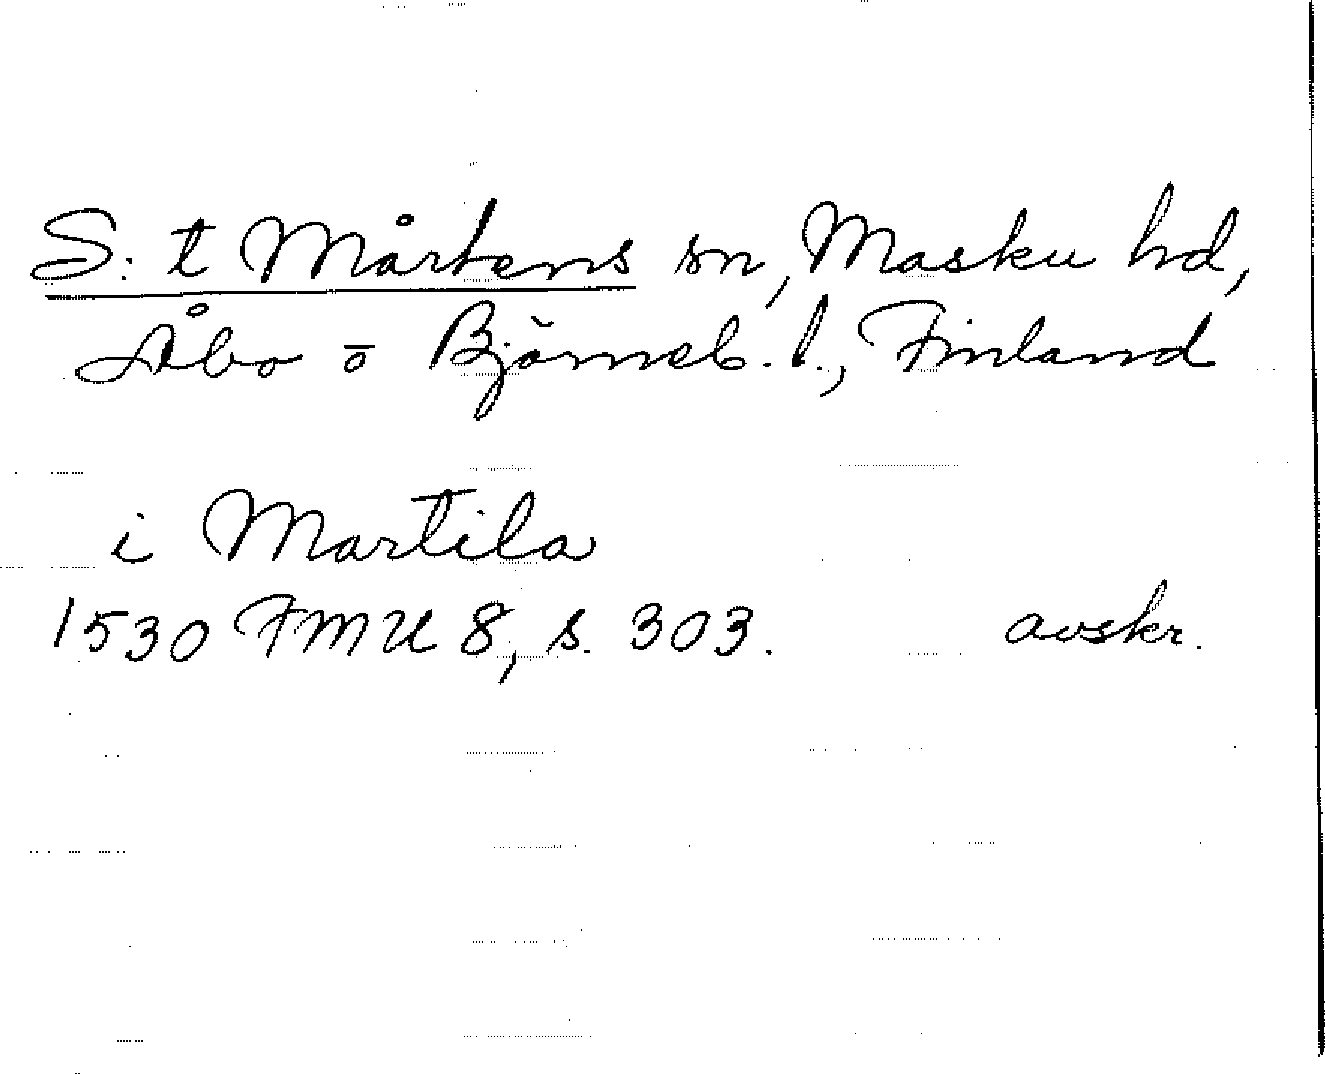 S:t Mårtens sn, Masku hd,
Åbo o Björneb. l., Finland
i Martila
1530 FMU 8, s. 303. avskr.